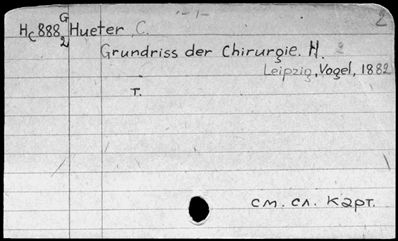 - 1 -
2
G
Hc888 Hueter C.
2
Grundriss der Chirurgie. H.
Leipzig, Vogel, 1882
T.
см. сл. карт.